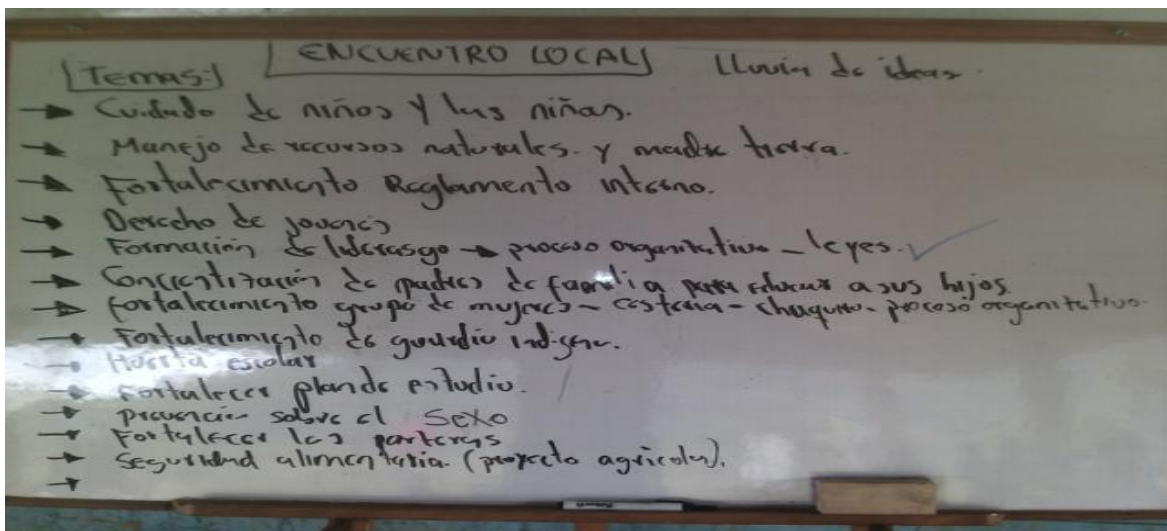 ENCUENTRO LOCAL Lluvia de ideas.
Temas:
→ Cuidado de niños y las niñas.
→ Manejo de recursos naturales. y madre tierra.
→ Fortalecimiento Reglamento interno.
→ Derecho de jovenes
→ Formación de liderasgo → proceso organitativo - leyes. ✓
→ Concientización de padres de familia para educar a sus hijos
→ fortalecimiento grupo de mujeres - cesteria - chaquira - proceso organitativo.
→ Fortalecimiento de guardia indigena.
→ Huerta escolar
→ Fortalecer plande estudio.
→ prevención sobre el sexo
→ Fortalecer las parteras
→ seguridad alimentaria. (proyecto agricola).
→